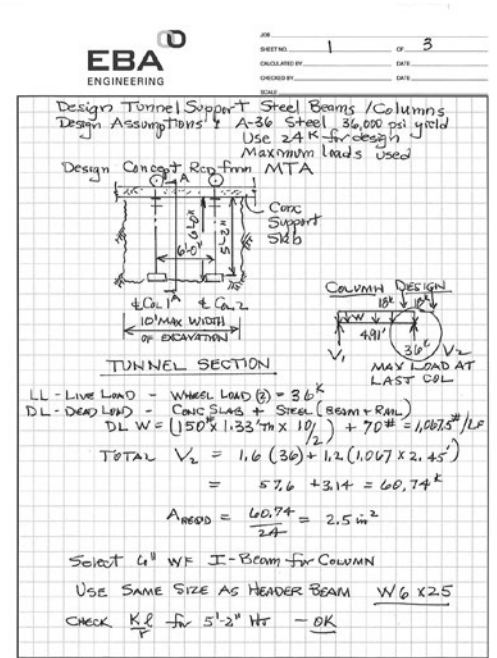 EBA
ENGINEERING
JOB
SHEET NO. 1 OF 3
CALCULATED BY DATE
CHECKED BY DATE
SCALE
Design Tunnel Support Steel Beams / Columns
Design Assumptions: A-36 Steel 36,000 psi yield
Use 24K for design
Maximum loads used
Design Concept from MTA
A
Conc
Support
Slab
6'-0"
6'-0"
5'-2"
℄ Col 1 A ℄ Col 2
10' MAX WIDTH
OF EXCAVATION
COLUMN DESIGN
18K 18K
W
4.91'
V1 36K V2
MAX LOAD AT
LAST COL
TUNNEL SECTION
LL - LIVE LOAD - WHEEL LOAD (2) = 36K
DL - DEAD LOAD - CONC SLAB + STEEL (BEAM + RAIL)
DL W = (150# x 1.33' Th x 10/2) + 70# = 1,067.5#/LF
TOTAL V2 = 1.6 (36) + 1.2 (1.067 x 2.45')
= 57.6 + 3.14 = 60.74K
AREQD = 60.74/24 = 2.5 in2
Select 6" WF I-Beam for COLUMN
USE SAME SIZE AS HEADER BEAM W6 x 25
CHECK Kl/r for 5'-2" HT - OK